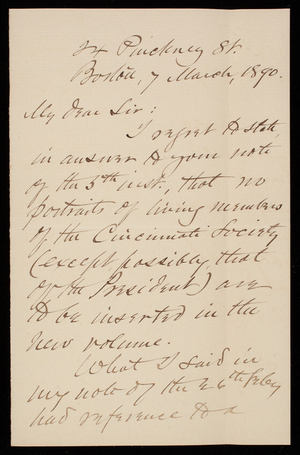 24 Pinckney St.
Boston, 7 March, 1890.
My dear Sir:
I regret to state,
in answer to your note
of the 5th inst., that no
portraits of living members
of the Cincinnati Society
(except possibly, that
of the President) are
to be inserted in the
new volume.
What I said in
my note of the 26th Feby
had reference to a